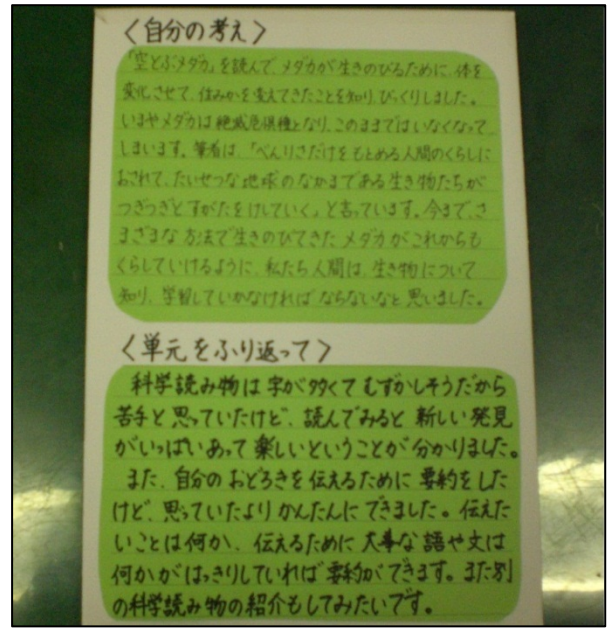 〈自分の考え〉
「空とぶメダカ」を読んで、メダカが生きのびるために、体を
変化させて、住みかを変えてきたことを知り、びっくりしました。
いまやメダカは絶滅危惧種となり、このままではいなくなって
しまいます。筆者は、「べんりさだけをもとめる人間のくらしに
おされて、たいせつな地球のなかまである生き物たちが
つぎつぎとすがたをけしていく。」と言っています。今まで、さ
まざまな方法で生きのびてきたメダカがこれからも
くらしていけるように、私たち人間は、生き物について
知り、学習していかなければならないなと思いました。
〈単元をふり返って〉
科学読み物は字が多くてむずかしそうだから
苦手と思っていたけど、読んでみると新しい発見
がいっぱいあって楽しいということが分かりました。
また、自分のおどろきを伝えるために要約をした
けど、思っていたよりかんたんにできました。伝えた
いことは何か、伝えるために大事な語や文は
何かがはっきりしていれば要約ができます。また別
の科学読み物の紹介もしてみたいです。